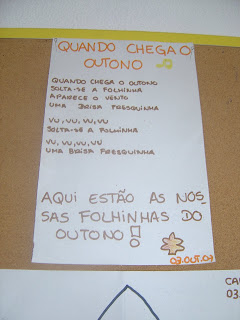 QUANDO CHEGA O
OUTONO
QUANDO CHEGA O OUTONO
SOLTA-SE A FOLHINHA
APARECE O VENTO
UMA BRISA FRESQUINHA
VU, VU, VU, VU
SOLTA-SE A FOLHINHA
VU, VU, VU, VU
UMA BRISA FRESQUINHA
AQUI ESTÃO AS NOS
SAS FOLHINHAS DO
OUTONO!
03.OUT.07
CA
03.